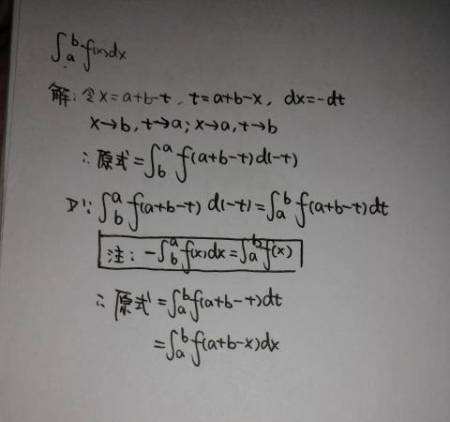 ∫ₐᵇ f(x)dx
解:令x=a+b-t, t=a+b-x, dx=-dt
x→b,t→a;x→a,t→b
∴原式=∫_b^a f(a+b-t)d(-t)
又∵∫_b^a f(a+b-t) d(-t)=∫_a^b f(a+b-t)dt
注:-∫_b^a f(x)dx=∫_a^b f(x)
∴原式=∫_a^b f(a+b-t)dt
=∫_a^b f(a+b-x)dx